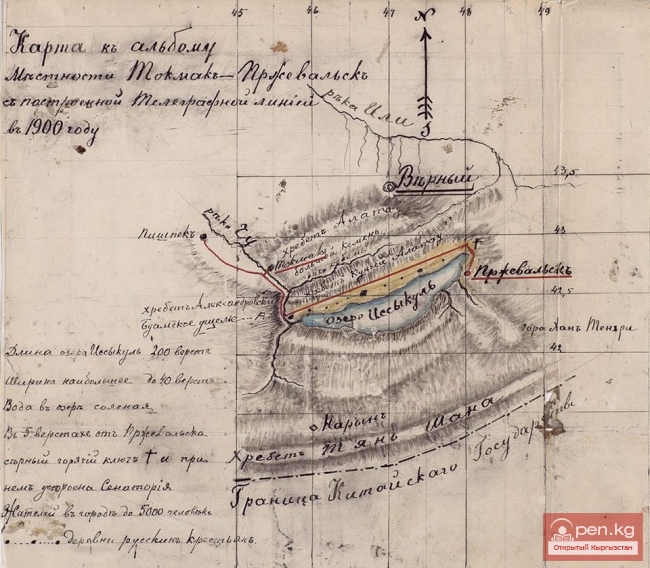 45 46 47 48 49
Карта къ альбому
Мѣстности Токмакъ — Пржевальскъ
съ построенной Телеграфной линіей
въ 1900 году
N
S
рѣка Или
43,5
Вѣрный
рѣка Чу
хребетъ Алатау
43
Пишпекъ
Токмакъ
большой Кемень
хребетъ Кунгей Алатау
Пржевальскъ
42,5
хребетъ Александровскій
Буамское ущелье
озеро Иссыкуль
гора Ханъ Тенгри
42
Длина озера Иссыкуль 200 верстъ
Ширина наибольшее до 40 верстъ
Вода въ озерѣ соленая
Въ 5 верстахъ отъ Пржевальска
сѣрный горячій ключъ † и при
немъ устроена Санаторія
Жителей въ городѣ до 5000 человѣкъ
деревни русскихъ крестьянъ.
Нарынъ
Хребетъ Тянь Шаня
Граница Китайскаго Государства
Open.kg
Открытый Кыргызстан